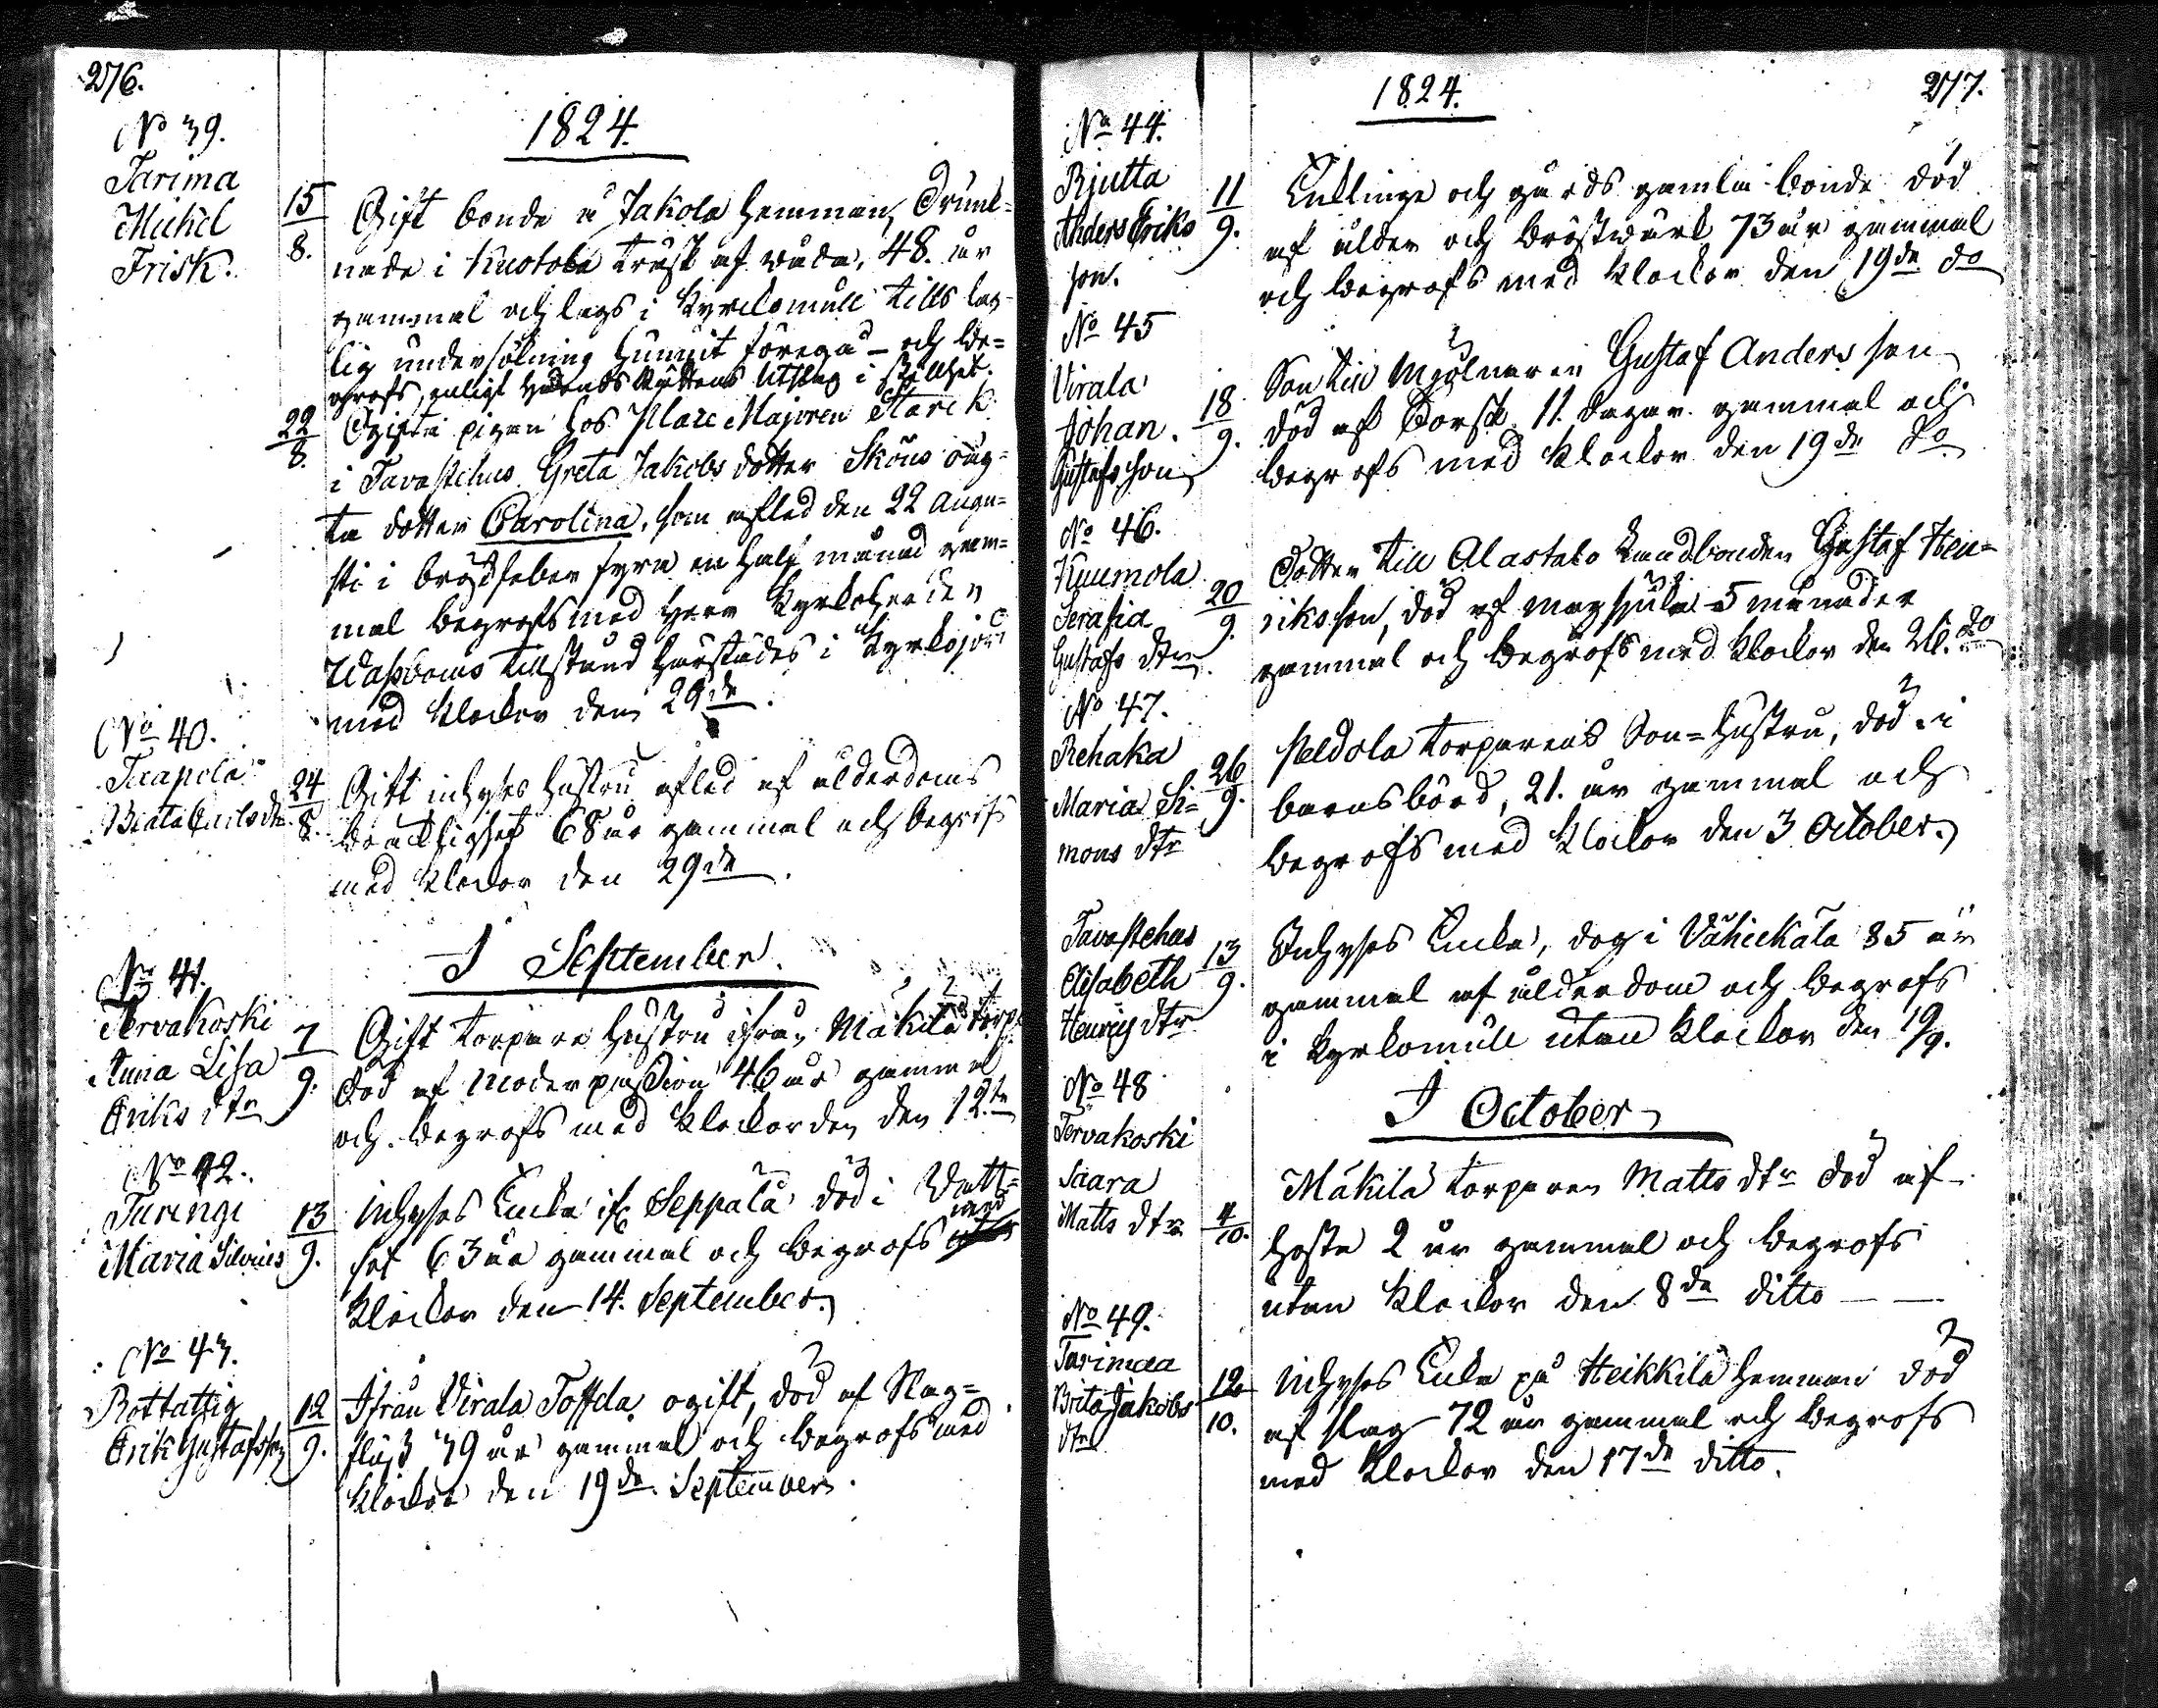 276.
1824.
No 39.
Tarima
Michel
Frisk.
15/8.
Gift bonde å Jakola hemman, Drunk=
nade i Kuotola träsk af våda, 48. år
gammal och lags i Kyrkomull tills lag=
lig undersökning hunnit föregå – och be=
grofs, enligt Härads Rättens Utslag i stillhet.
22/8.
Ogifta pigan hos Majoren Starck
i Tavastehus Greta Jakobs dotter Sköns oäg=
ta dotter Carolina, som afled den 22 Augu=
sti i bröstfeber fyra en half månad gam=
mal begrofs med Herr Kyrkoherden
tillstånd härstädes i Kyrkojord
med klockor den 29de.
No 40.
Taapola
Beata dtr
24/8.
Gift inhyses hustru afled af ålderdoms
bräcklighet 68 år gammal och begrofs
med klockor den 29de.
I September.
No 41.
Tervakoski
Anna Lisa
Eriks dtr
7/9.
Gift torpare hustru ifrån Mäkilä torp
död af moderpassion 46 år gammal
och begrofs med klockor den 12te
No 42.
Turengi
Maria
13/9.
inhyses Enka if. Seppälä död i Watt=
sot 63 år gammal och begrofs med
klockor den 14. September.
No 43.
Rottattig
Erik Gustafsson
12/9.
Ifrån Virala Toffila ogift, död af Slag=
fluß 79 år gammal och begrofs med
klockor den 19de September.
277.
1824.
No 44.
Rjutta
Anders Eriks
son.
11/9.
Enklinge och gårds gamla bonde död
af ålder och bröstwärk 73 år gammal
och begrofs med klockor den 19de do
No 45
Virala
Johan
Gustafs son
18/9.
Son till Mjölnaren Gustaf Andersson
död af Torsk 11. dagar gammal och
begrofs med klockor den 19de do
No 46.
Kuumola
Serafia
Gustafs dtr.
20/9.
Dotter till Alastalo Landbonden Gustaf Hen=
riksson, död af magsjuka 5 månader
gammal och begrofs med klockor den 26. do
No 47.
Rehaka
Maria Si=
mons dtr
26/9.
Peldola torparens Son=hustru, död i
barnsbörd, 21. år gammal och
begrofs med klockor den 3 October.
Tavastehus
Elisabeth
Henrichs dtr
13/9.
Inhyses Enka, dog i Vähiekälä 85 år
gammal af ålderdom och begrofs
i kyrkomull utan klockor den 19/9.
I October
No 48
Tervakoski
Saara
Matts dtr
4/10.
Mäkilä torparen Matts dtr död af
hosta 2 år gammal och begrofs
utan klockor den 8de ditto — —
No 49.
Tarimaa
Brita Jakobs
dtr
12/10.
inhyses Enka på Heikkilä hemman död
af slag 72 år gammal och begrofs
med klockor den 17de ditto.